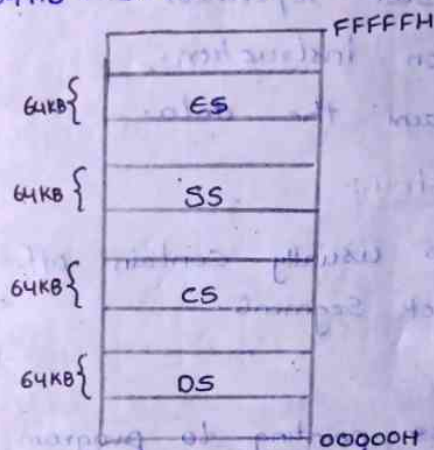 FFFFFH
64KB{ ES
64KB{ SS
64KB{ CS
64KB{ DS
00000H